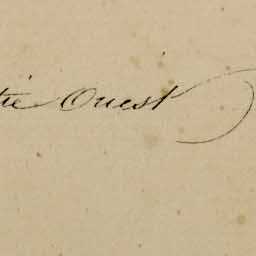 tie Ouest